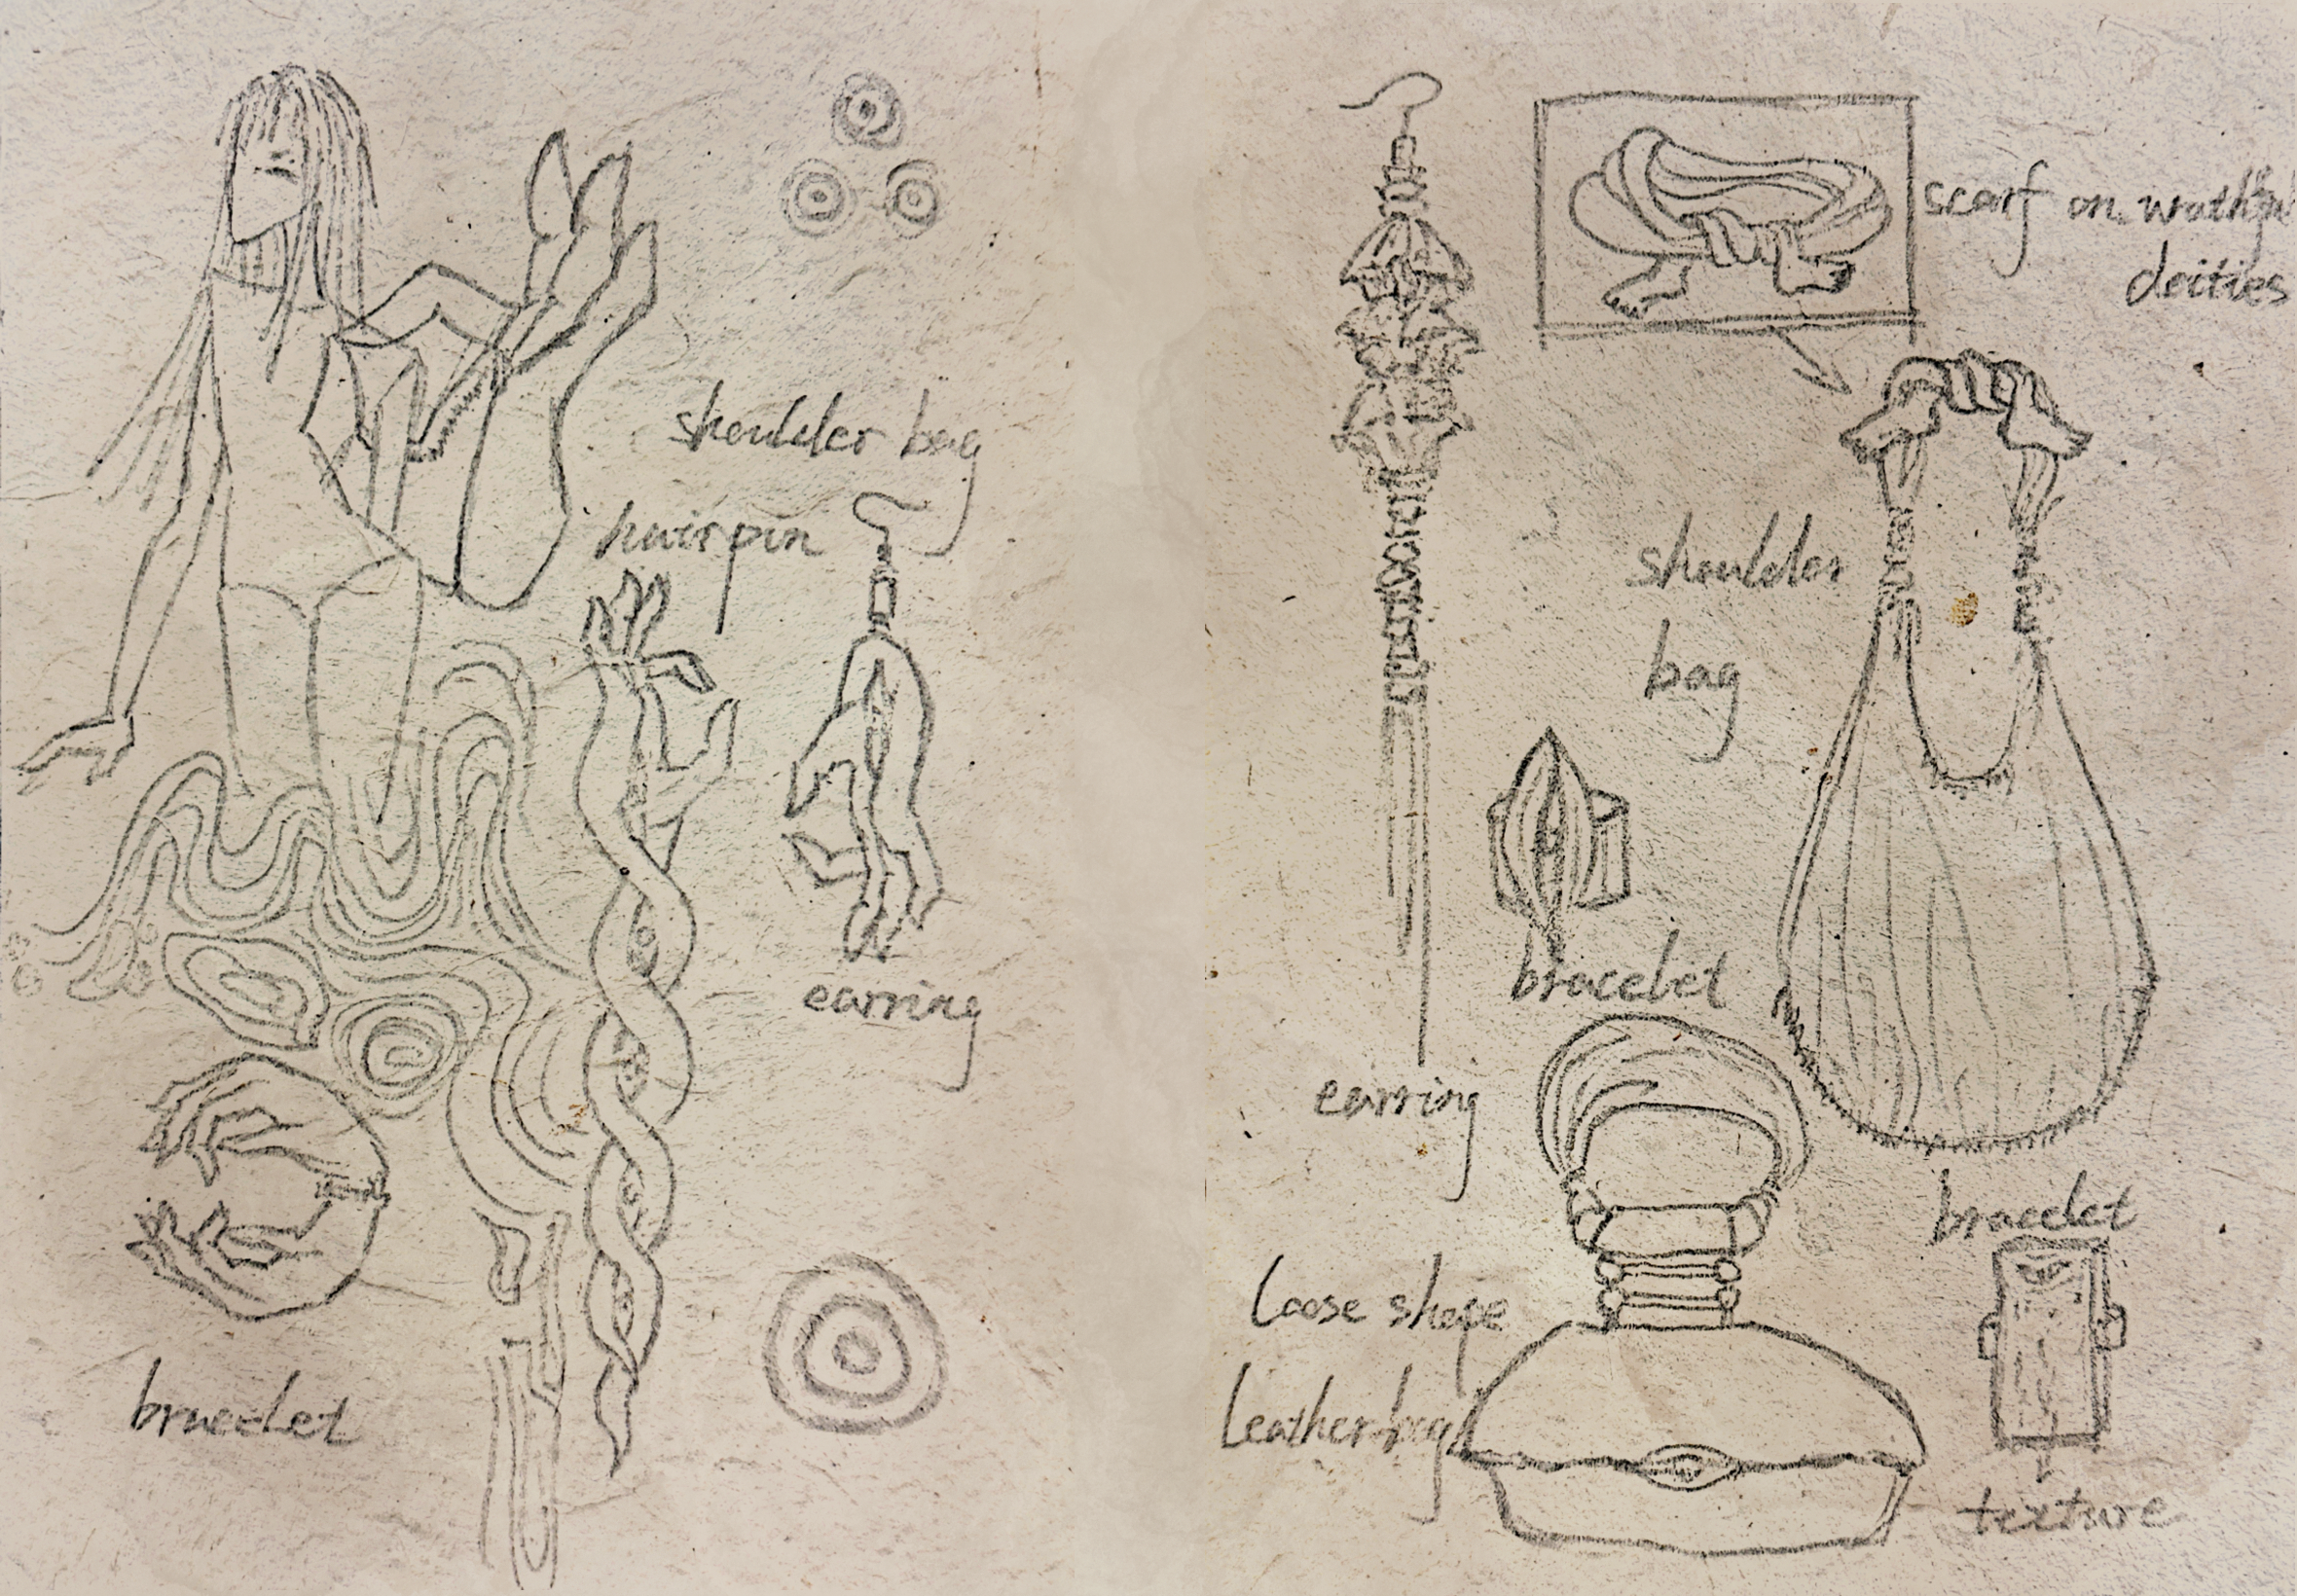 shoulder bag
hairpin
earring
bracelet
scarf on wrathful
deities
shoulder
bag
bracelet
earring
bracelet
Loose shape
Leather bag
texture